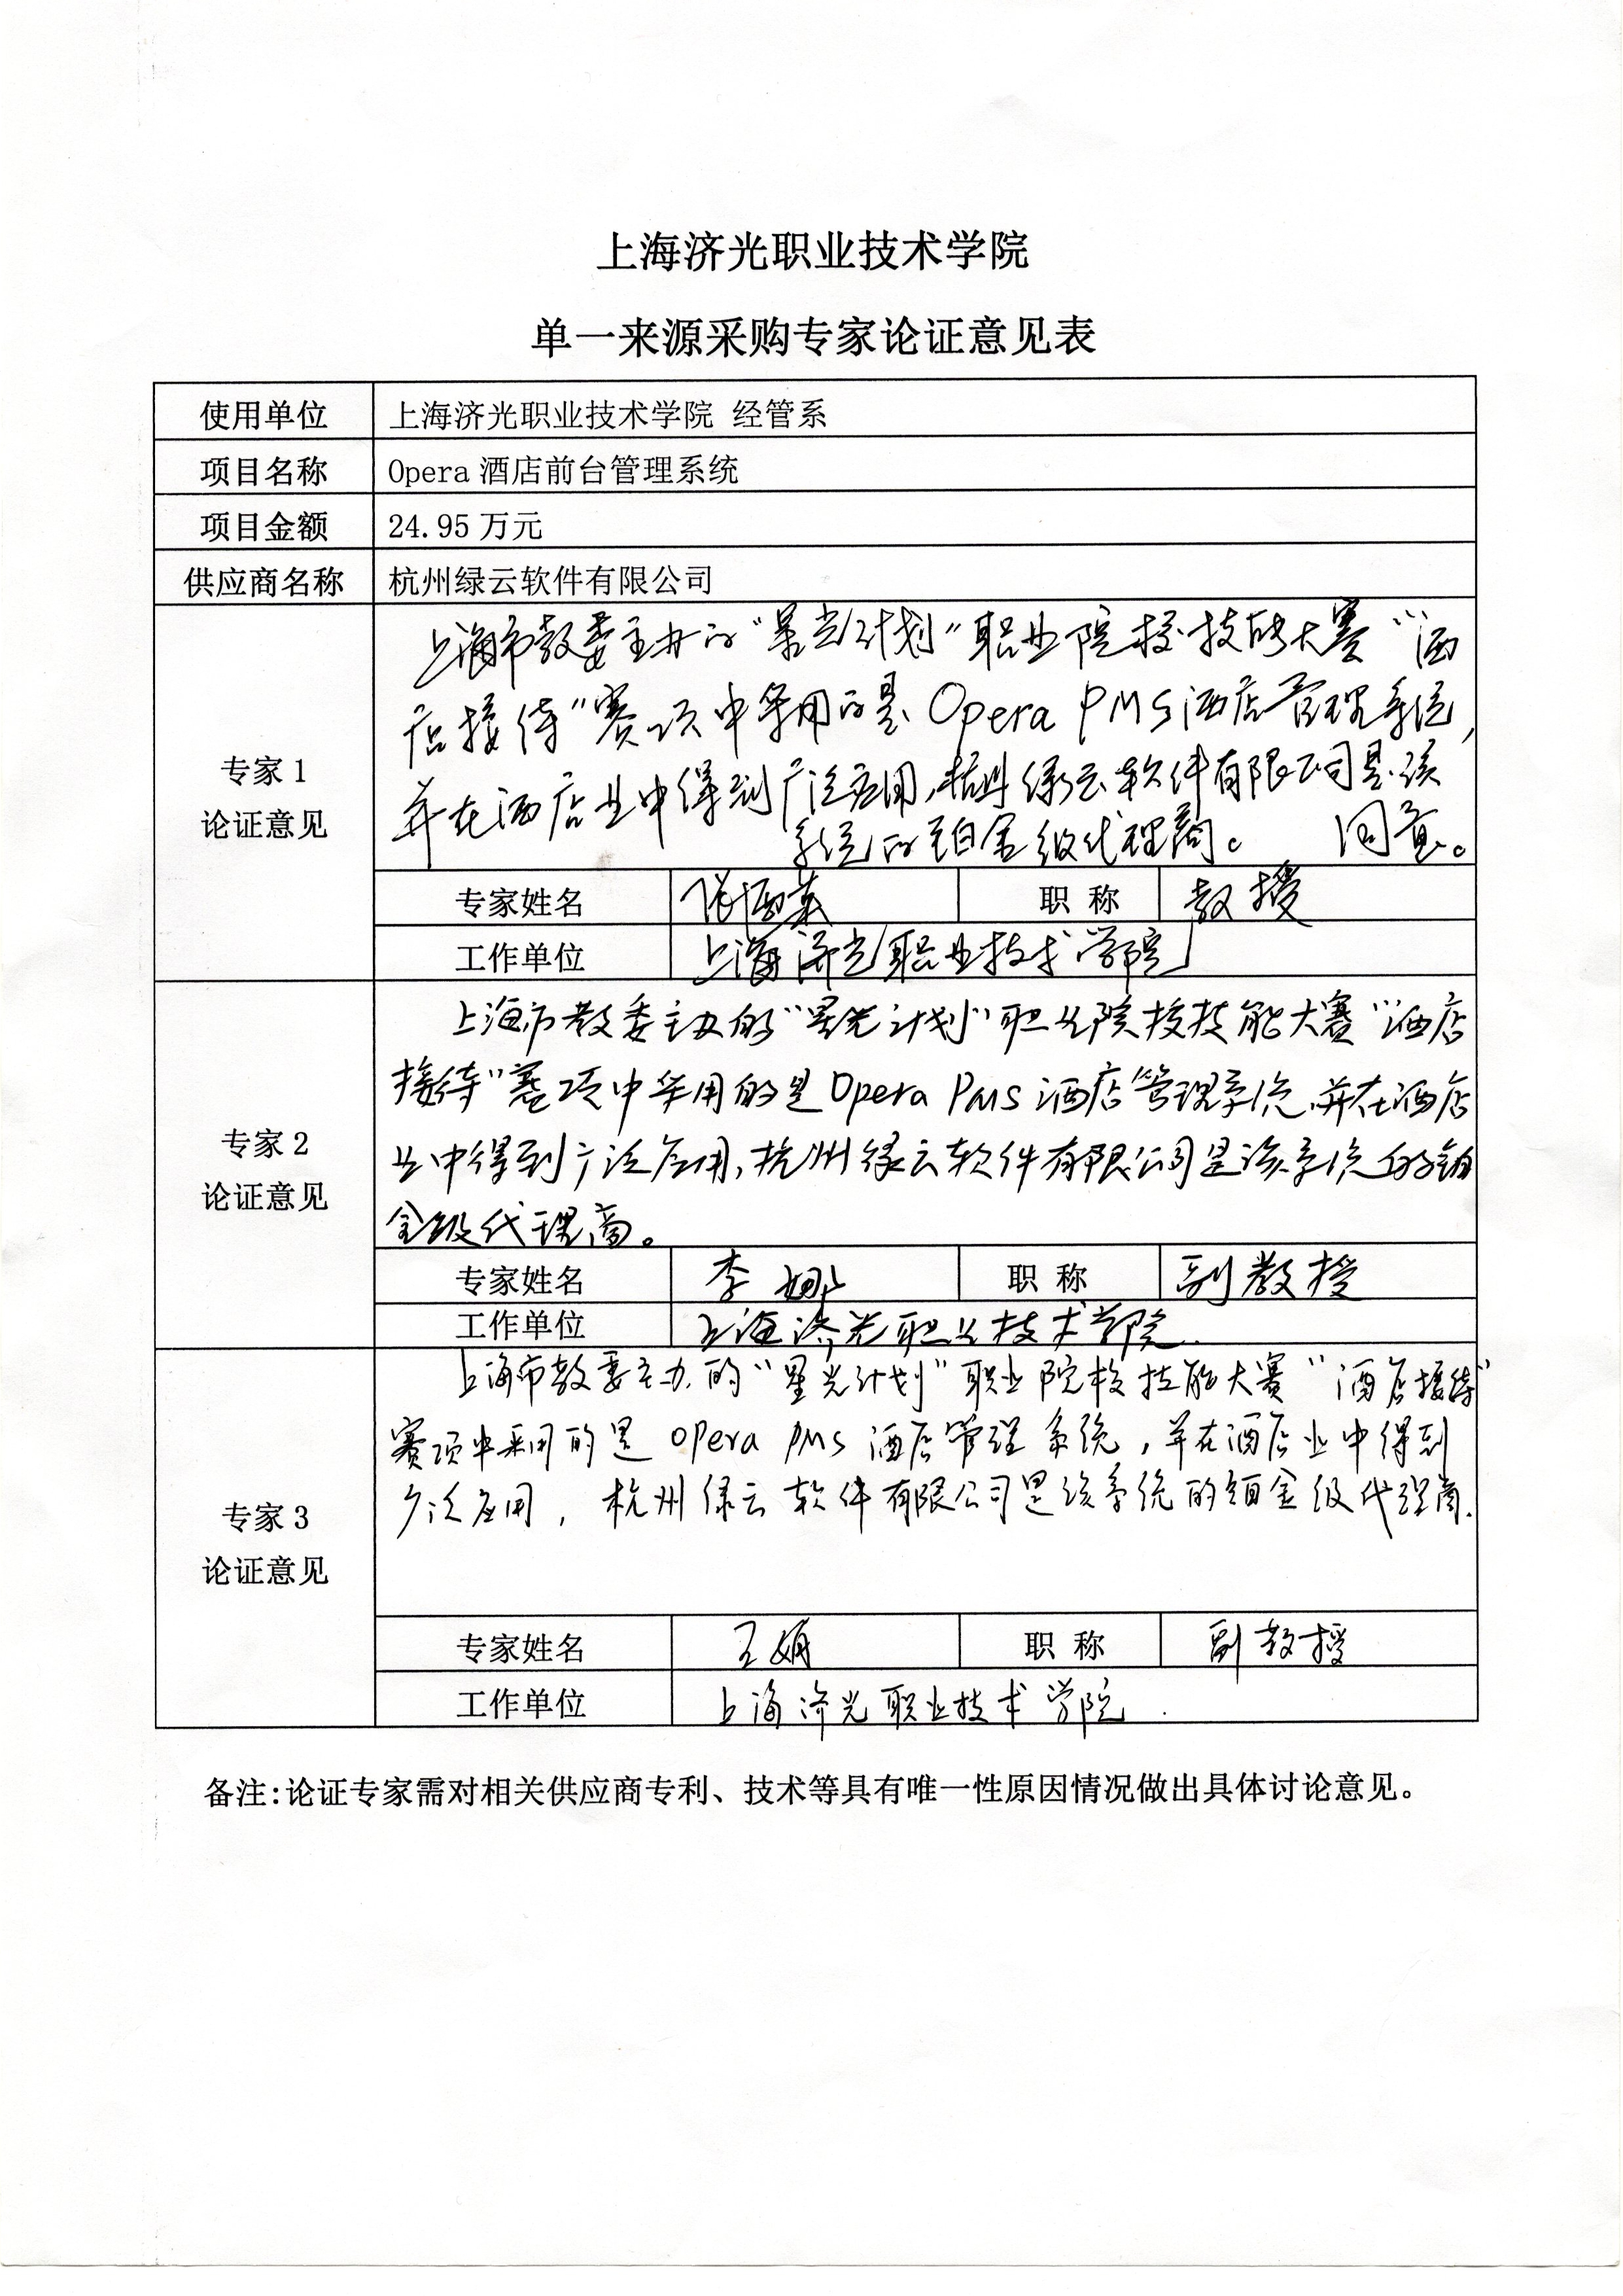 上海济光职业技术学院
单一来源采购专家论证意见表
使用单位 上海济光职业技术学院 经管系
项目名称 Opera 酒店前台管理系统
项目金额 24.95 万元
供应商名称 杭州绿云软件有限公司
专家 1
论证意见
上海市教委主办的“星光计划”职业院校技能大赛“酒
店接待”赛项中采用的是 Opera PMS 酒店管理系统,
并在酒店业中得到广泛应用,杭州绿云软件有限公司是该
系统的铂金级代理商。 同意。
专家姓名 职 称 教授
工作单位 上海济光职业技术学院
专家 2
论证意见
上海市教委主办的“星光计划”职业院校技能大赛“酒店
接待”赛项中采用的是 Opera PMS 酒店管理系统,并在酒店
业中得到广泛应用,杭州绿云软件有限公司是该系统的铂
金级代理商。
专家姓名 李娜 职 称 副教授
工作单位 上海济光职业技术学院.
专家 3
论证意见
上海市教委主办的“星光计划”职业院校技能大赛“酒店接待”
赛项中采用的是 opera PMS 酒店管理系统,并在酒店业中得到
广泛应用, 杭州绿云软件有限公司是该系统的铂金级代理商.
专家姓名 王娟 职 称 副教授
工作单位 上海济光职业技术学院.
备注:论证专家需对相关供应商专利、技术等具有唯一性原因情况做出具体讨论意见。